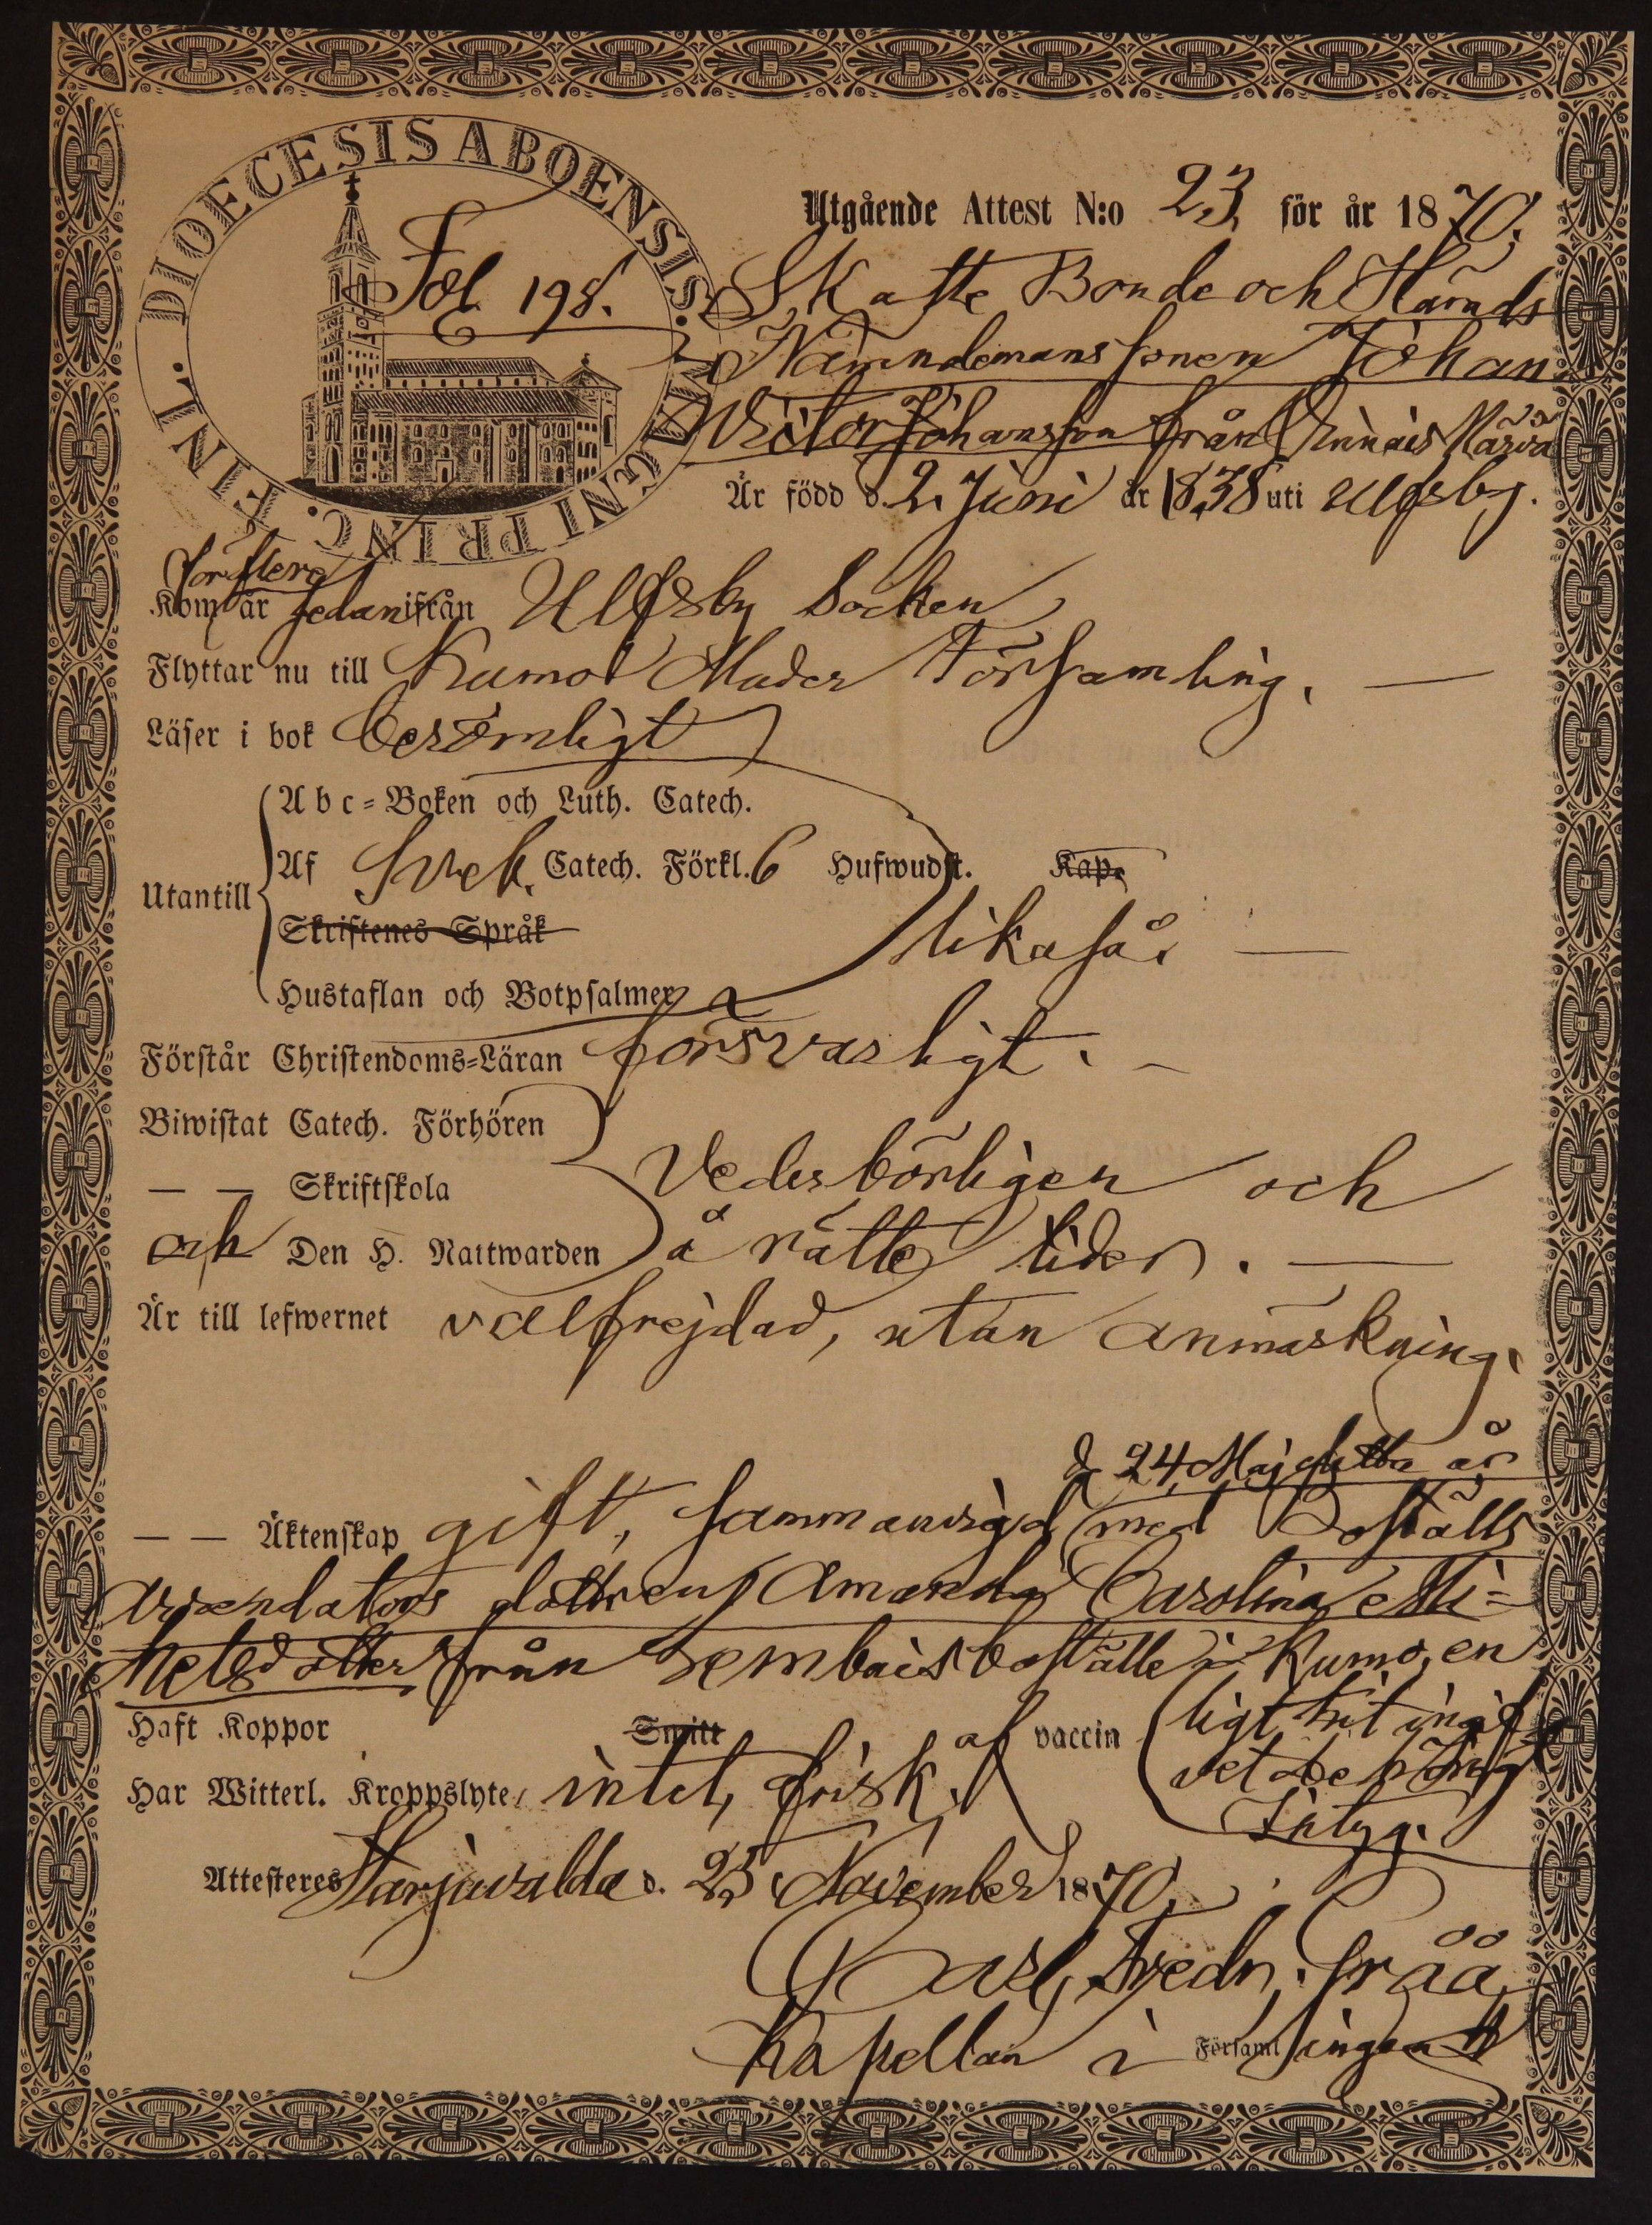 DIOECESIS ABOENSIS. MAGNI PRINC. FINL.
Utgående Attest N:o 23 för år 1870.
Fol. 198.
Skatte Bonde och Härads
Nämndemans sonen Johan
Victor Johansson från
Är född d. 2 Juni år 1838 uti Ulfsby.
för flere
Kom år sedan ifrån Ulfsby Socken
Flyttar nu till Kumo Moder Församling. —
Läser i bok berömligt
Abc-Boken och Luth. Catech.
Utantill Af Svek. Catech. Förkl. 6 Hufwudst. Kap.
Skriftenes Språk
likaså. —
Hustaflan och Botpsalmer
Förstår Christendoms-Läran försvarligt. –
Biwistat Catech. Förhören
— — Skriftskola Vederbörligen och
och Den H. Nattwarden å rätte tider. —
Är till lefwernet välfrejdad, utan anmärkning.
d. 24 Maj detta år
— — Äktenskap gift, sammanvigd med Boställs
arrendators dottren Amanda Carolina Mi-
kelsdotter från boställe i Kumo, en
Haft Koppor Smitt af vaccin ligt hit ingif
Har Witterl. Kroppslyte intet, frisk. vet behörigt
Intyg.
Attesteres Harjavalda d. 25 November 1870.
Carl Fredr. Grää
Kapellan i Församlingen